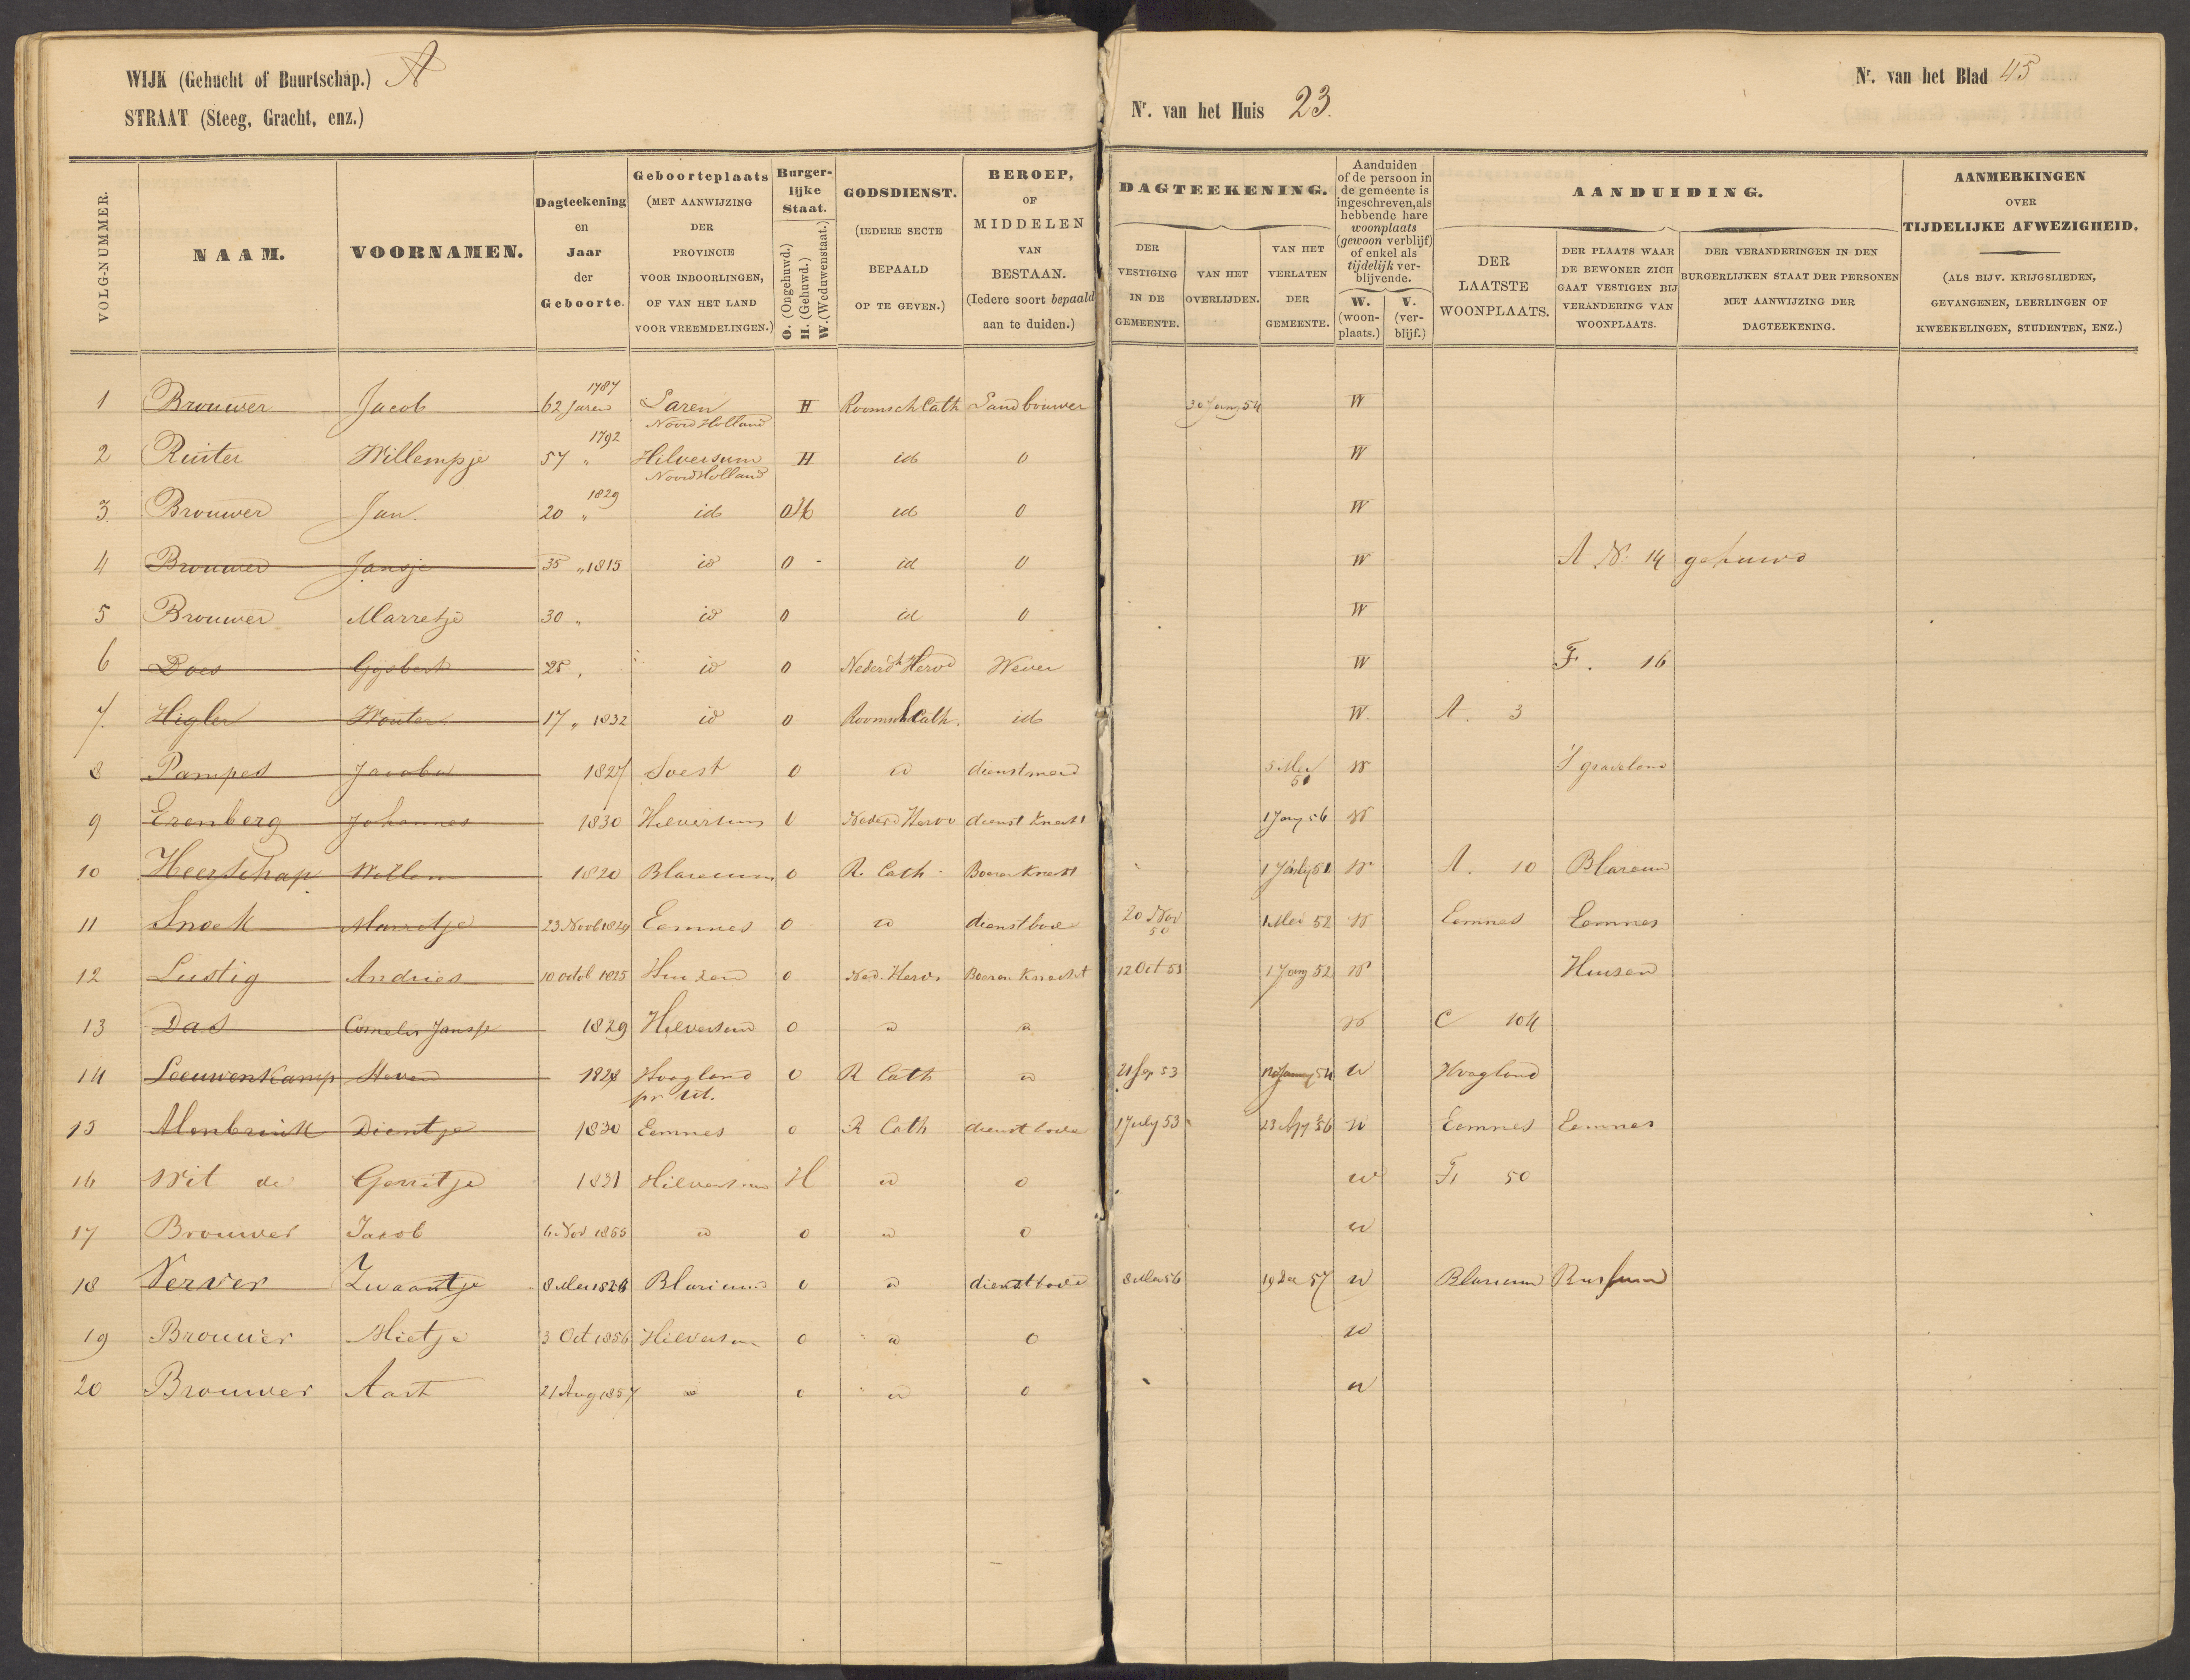 WIJK (Gehucht of Buurtschap.) A
STRAAT (Steeg, Gracht, enz.)
Nr. van het Huis 23.
Nr. van het Blad 45
VOLG-NUMMER.
NAAM.
VOORNAMEN.
Dagteekening
en
Jaar
der
Geboorte.
Geboorteplaats
(MET AANWIJZING
DER
PROVINCIE
VOOR INBOORLINGEN,
OF VAN HET LAND
VOOR VREEMDELINGEN.)
Burger-
lijke
Staat.
O. (Ongehuwd.)
H. (Gehuwd.)
W. (Weduwenstaat.)
GODSDIENST.
(IEDERE SECTE
BEPAALD
OP TE GEVEN.)
BEROEP,
OF
MIDDELEN
VAN
BESTAAN.
(Iedere soort bepaald
aan te duiden.)
DAGTEEKENING.
DER
VESTIGING
IN DE
GEMEENTE.
VAN HET
OVERLIJDEN.
VAN HET
VERLATEN
DER
GEMEENTE.
Aanduiden
of de persoon in
de gemeente is
ingeschreven, als
hebbende hare
woonplaats
(gewoon verblijf)
of enkel als
tijdelijk ver-
blijvende.
W.
(woon-
plaats.)
V.
(ver-
blijf.)
AANDUIDING.
DER
LAATSTE
WOONPLAATS.
DER PLAATS WAAR
DE BEWONER ZICH
GAAT VESTIGEN BIJ
VERANDERING VAN
WOONPLAATS.
DER VERANDERINGEN IN DEN
BURGERLIJKEN STAAT DER PERSONEN
MET AANWIJZING DER
DAGTEEKENING.
AANMERKINGEN
OVER
TIJDELIJKE AFWEZIGHEID.
(ALS BIJV. KRIJGSLIEDEN,
GEVANGENEN, LEERLINGEN OF
KWEEKELINGEN, STUDENTEN, ENZ.)
1 Brouwer Jacob 62 Jaren 1787 Laren Noord Holland H Roomsch Cath Landbouwer 30 Jany 54 W
2 Ruiter Willempje 57 " 1792 Hilversum Noord Holland H id 0 W
3 Brouwer Jan. 20 " 1829 id O H id 0 W
4 Brouwer Jansje 35 " 1815 id O - id 0 W A No. 14 gehuwd
5 Brouwer Marretje 30 " id O id 0 W
6 Does Gijsbert 25 " id O Nederd Hervd Wever W F. 16
7. Higler Wouter 17 " 1832 id O Roomsch Cath. id W. A. 3
8 Pampes Jacoba 1827 Soest O id dienstmeid 5 Mei 51 W 'S graveland
9 Erenberg Johannes 1830 Hilversum O Nederd Hervd dienst Knecht 1 Jany 56 W
10 Heerschap Willem 1820 Blaricum O R. Cath Boeren Knecht 1 July 51 W A. 10 Blaricum
11 Snoek Marretje 23 Novb 1824 Eemnes O id dienstbode 20 Nov 50 1 Mei 52 W Eemnes Eemnes
12 Lustig Andries 10 octob 1825 Huizen O Ned. Hervd Boeren Knecht 12 Oct 53 1 Jany 52 W Huisen
13 Das Cornelis Jansje 1829 Hilversum O id id W C 104
14 Leeuwenkamp Steven 1828 Hoogland pr Ut. O R Cath id 21 Sep 53 Jany 54 W Hoogland
15 Dientje 1830 Eemnes O R Cath dienstbode 1 July 53 23 Apr 56 W Eemnes Eemnes
16 Wit de Gerritje 1821 Hilversum H id 0 W F 50
17 Brouwer Jacob 6 Nov 1855 id O id 0 W
18 Verver Zwaantje 8 Mei 1826 Blaricum O id dienstbode 8 Mei 56 19 Dec 57 W Blaricum Bussum
19 Brouwer Mietje 3 Oct 1856 Hilversum O id 0 W
20 Brouwer Aart 21 Aug 1857 id O id 0 W